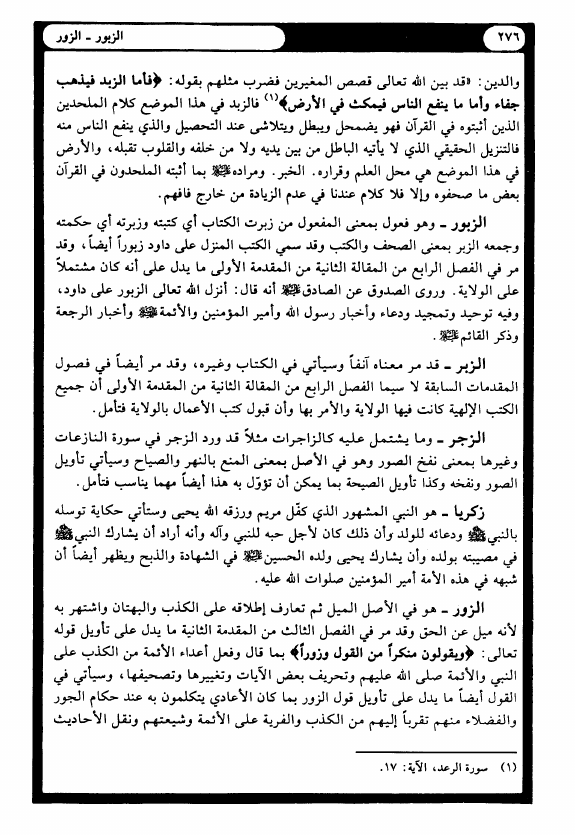 ٢٧٦
الزبور - الزور
والدين: «قد بين الله تعالى قصص المغيرين فضرب مثلهم بقوله: ﴿فأما الزبد فيذهب
جفاء وأما ما ينفع الناس فيمكث في الأرض﴾(١) فالزبد في هذا الموضع كلام الملحدين
الذين أثبتوه في القرآن فهو يضمحل ويبطل ويتلاشى عند التحصيل والذي ينفع الناس منه
فالتنزيل الحقيقي الذي لا يأتيه الباطل من بين يديه ولا من خلفه والقلوب تقبله، والأرض
في هذا الموضع هي محل العلم وقراره. الخبر. ومراده ﷺ بما أثبته الملحدون في القرآن
بعض ما صحفوه وإلا فلا كلام عندنا في عدم الزيادة من خارج فافهم.
الزبور - وهو فعول بمعنى المفعول من زبرت الكتاب أي كتبته وزبرته أي حكمته
وجمعه الزبر بمعنى الصحف والكتب وقد سمي الكتب المنزل على داود زبوراً أيضاً، وقد
مر في الفصل الرابع من المقالة الثانية من المقدمة الأولى ما يدل على أنه كان مشتملاً
على الولاية. وروى الصدوق عن الصادق أنه قال: أنزل الله تعالى الزبور على داود،
وفيه توحيد وتمجيد ودعاء وأخبار رسول الله وأمير المؤمنين والأئمة وأخبار الرجعة
وذكر القائم.
الزبر - قد مر معناه آنفاً وسيأتي في الكتاب وغيره، وقد مر أيضاً في فصول
المقدمات السابقة لا سيما الفصل الرابع من المقالة الثانية من المقدمة الأولى أن جميع
الكتب الإلهية كانت فيها الولاية والأمر بها وأن قبول كتب الأعمال بالولاية فتأمل.
الزجر - وما يشتمل عليه كالزاجرات مثلاً قد ورد الزجر في سورة النازعات
وغيرها بمعنى نفخ الصور وهو في الأصل بمعنى المنع بالنهر والصياح وسيأتي تأويل
الصور ونفخه وكذا تأويل الصيحة بما يمكن أن تؤوّل به هذا أيضاً مهما يناسب فتأمل.
زكريا - هو النبي المشهور الذي كفّل مريم ورزقه الله يحيى وستأتي حكاية توسله
بالنبي ﷺ ودعائه للولد وأن ذلك كان لأجل حبه للنبي وآله وأنه أراد أن يشارك النبي ﷺ
في مصيبته بولده وأن يشارك يحيى ولده الحسين في الشهادة والذبح ويظهر أيضاً أن
شبهه في هذه الأمة أمير المؤمنين صلوات الله عليه.
الزور - هو في الأصل الميل ثم تعارف إطلاقه على الكذب والبهتان واشتهر به
لأنه ميل عن الحق وقد مر في الفصل الثالث من المقدمة الثانية ما يدل على تأويل قوله
تعالى: ﴿ويقولون منكراً من القول وزوراً﴾ بما قال وفعل أعداء الأئمة من الكذب على
النبي والأئمة صلى الله عليهم وتحريف بعض الآيات وتغييرها وتصحيفها، وسيأتي في
القول أيضاً ما يدل على تأويل قول الزور بما كان الأعادي يتكلمون به عند حكام الجور
والفضلاء منهم تقرباً إليهم من الكذب والفرية على الأئمة وشيعتهم ونقل الأحاديث
(١) سورة الرعد، الآية: ١٧.